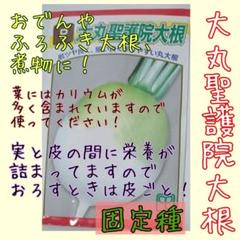 大丸聖護院大根
おでんや
ふろふき大根、
煮物に！
丸聖護院大根
葉にはカリウムが
多く含まれていますので
使ってください！
実と皮の間に栄養が
詰まってますので
おろすときは皮ごと！
固定種